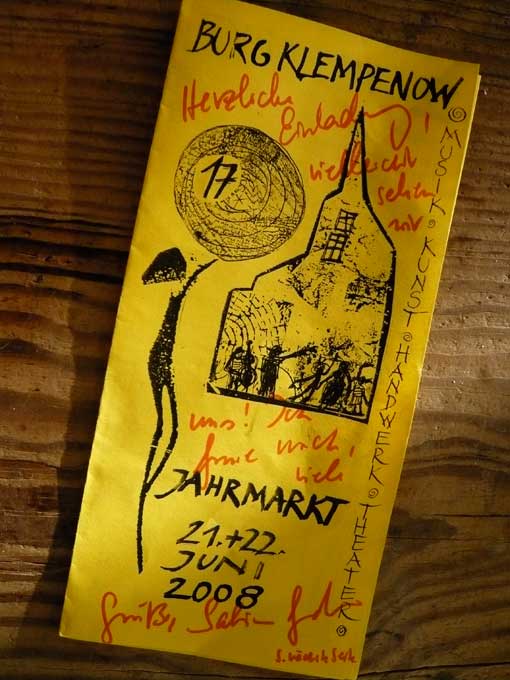 BURG KLEMPENOW
Herzliche
Einladung!
vielleicht
sehen
wir
17
MUSIK KUNST HANDWERK THEATER
uns! Ich
freue mich,
viele
JAHRMARKT
21.+22.
JUNI
2008
Grüße, Sabine